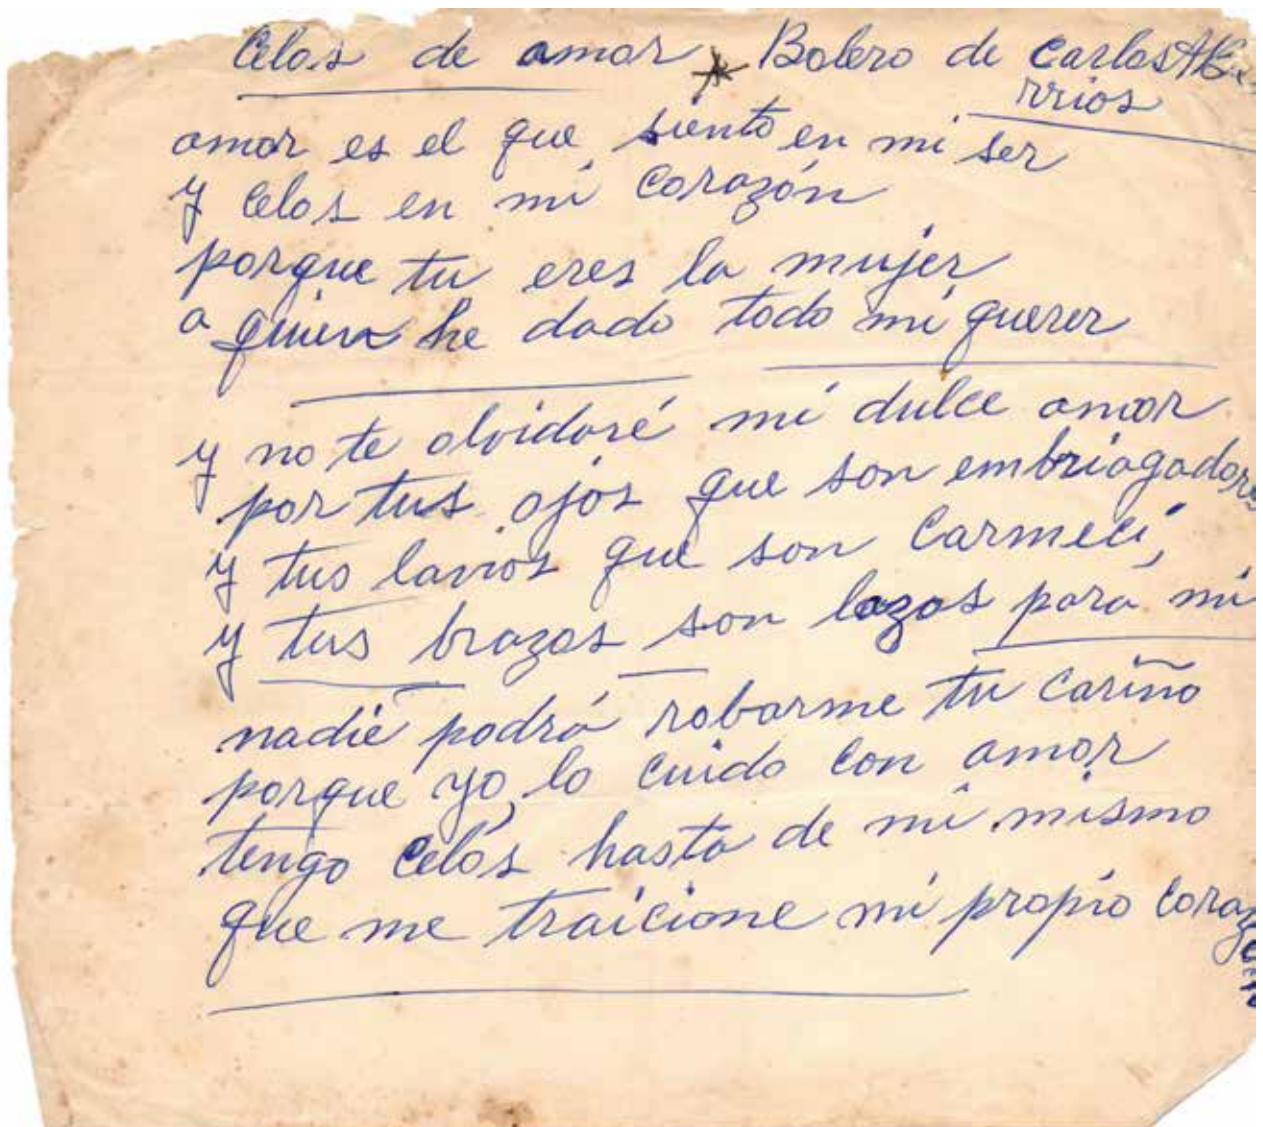 Celos de amor * Bolero de Carlos
rrios
amor es el que siento en mi ser
y celos en mi corazón
porque tu eres la mujer
a quien he dado todo mi querer
y no te olvidaré mi dulce amor
por tus ojos que son embriagadores
y tus lavios que son carmecí,
y tus brazos son lazos para mi
nadie podrá robarme tu cariño
porque yo lo cuido con amor
tengo celos hasta de mi mismo
que me traicione mi propio corazón